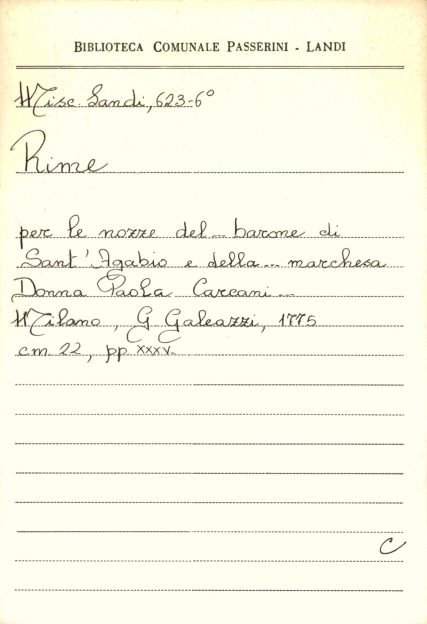 BIBLIOTECA COMUNALE PASSERINI - LANDI
Misc. Landi, 623-6°
Rime
per le nozze del ... barone di
Sant'Agabio e della ... marchesa
Donna Paola Carcani ...
Milano, G. Galeazzi, 1775
cm. 22, pp. XXXV.
C